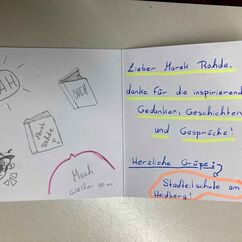 AH
BUCH
Marek
Rohde
Mach
weiter so
Lieber Marek Rohde,
danke für die inspirierenden
Gedanken, Geschichten
und Gespräche!
Herzliche Grüße:
Stadtteilschule am
Heidberg!